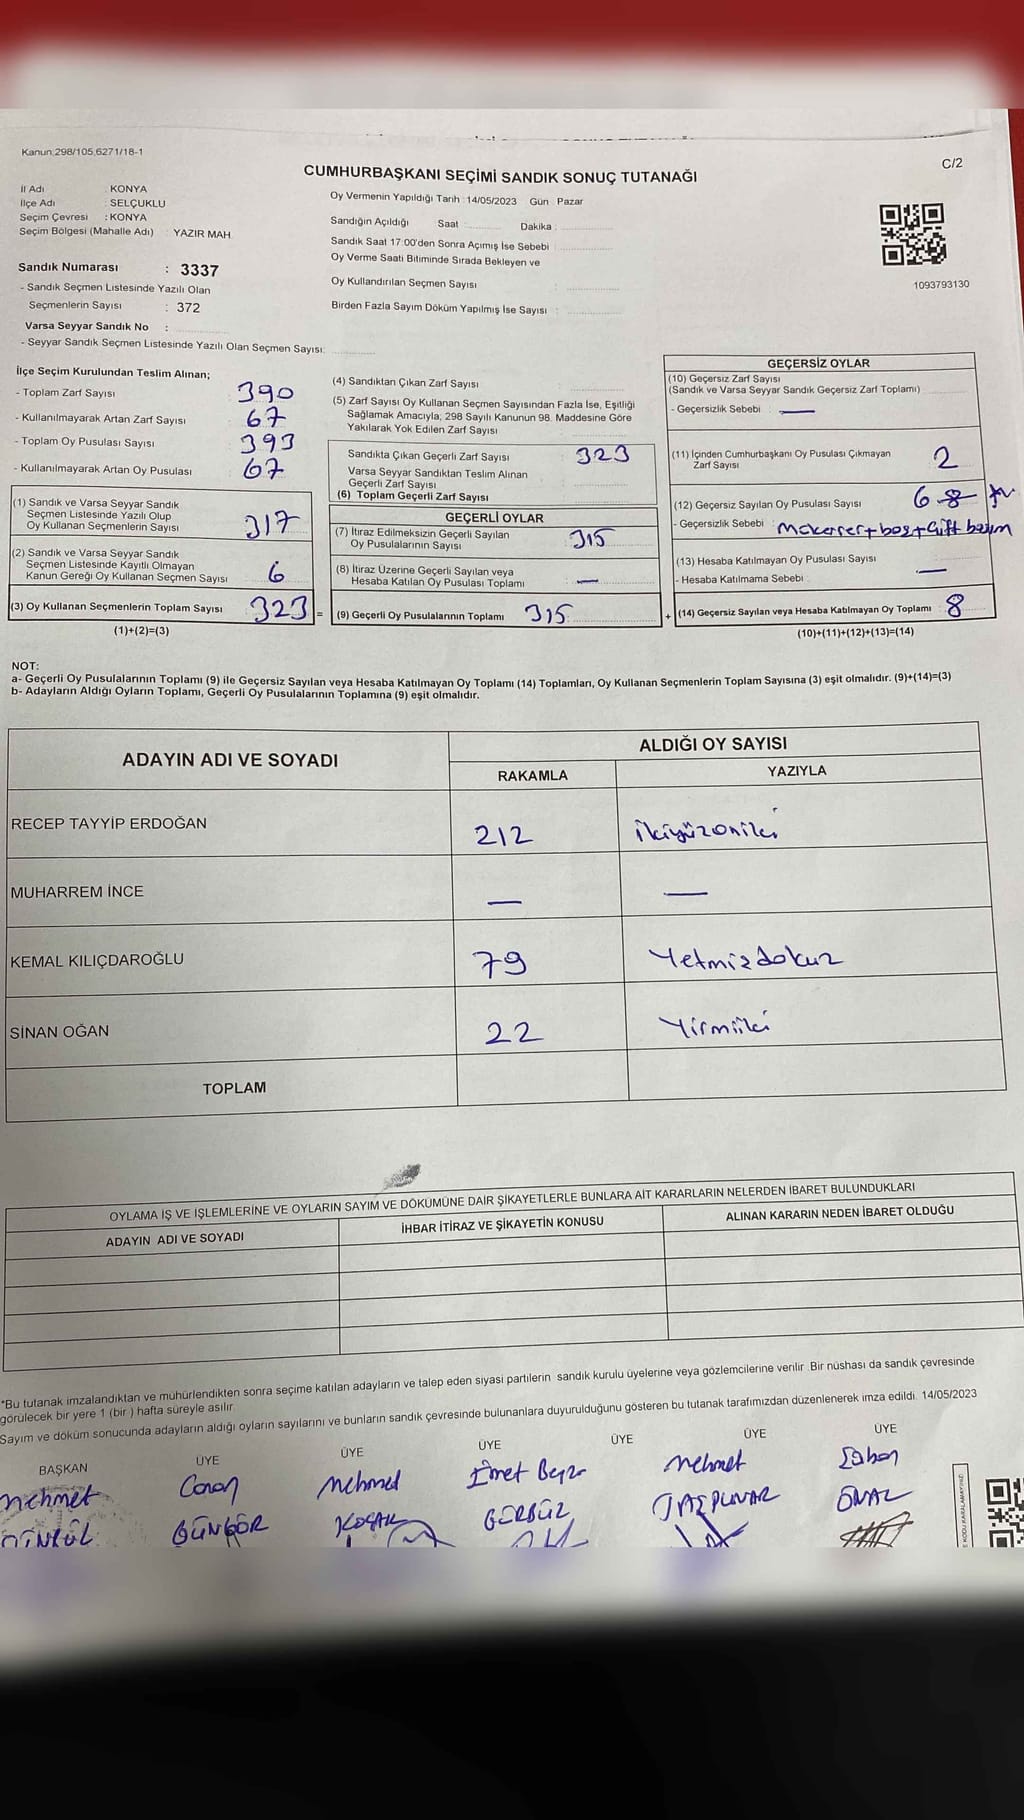 Kanun:298/105,6271/18-1
C/2
CUMHURBAŞKANI SEÇİMİ SANDIK SONUÇ TUTANAĞI
İl Adı : KONYA
İlçe Adı : SELÇUKLU
Seçim Çevresi : KONYA
Seçim Bölgesi (Mahalle Adı) : YAZIR MAH.
Sandık Numarası : 3337
- Sandık Seçmen Listesinde Yazılı Olan
Seçmenlerin Sayısı : 372
Varsa Seyyar Sandık No :
- Seyyar Sandık Seçmen Listesinde Yazılı Olan Seçmen Sayısı:
Oy Vermenin Yapıldığı Tarih : 14/05/2023 Gün : Pazar
Sandığın Açıldığı Saat Dakika :
Sandık Saat 17:00'den Sonra Açımış İse Sebebi :
Oy Verme Saati Bitiminde Sırada Bekleyen ve
Oy Kullandırılan Seçmen Sayısı :
Birden Fazla Sayım Döküm Yapılmış İse Sayısı :
1093793130
İlçe Seçim Kurulundan Teslim Alınan;
- Toplam Zarf Sayısı 390
- Kullanılmayarak Artan Zarf Sayısı 67
- Toplam Oy Pusulası Sayısı 393
- Kullanılmayarak Artan Oy Pusulası 67
(1) Sandık ve Varsa Seyyar Sandık
Seçmen Listesinde Yazılı Olup
Oy Kullanan Seçmenlerin Sayısı 317
(2) Sandık ve Varsa Seyyar Sandık
Seçmen Listesinde Kayıtlı Olmayan
Kanun Gereği Oy Kullanan Seçmen Sayısı 6
(3) Oy Kullanan Seçmenlerin Toplam Sayısı 323 =
(1)+(2)=(3)
(4) Sandıktan Çıkan Zarf Sayısı
(5) Zarf Sayısı Oy Kullanan Seçmen Sayısından Fazla İse, Eşitliği
Sağlamak Amacıyla, 298 Sayılı Kanunun 98. Maddesine Göre
Yakılarak Yok Edilen Zarf Sayısı
Sandıkta Çıkan Geçerli Zarf Sayısı 323
Varsa Seyyar Sandıktan Teslim Alınan
Geçerli Zarf Sayısı
(6) Toplam Geçerli Zarf Sayısı
GEÇERLİ OYLAR
(7) İtiraz Edilmeksizin Geçerli Sayılan
Oy Pusulalarının Sayısı 315
(8) İtiraz Üzerine Geçerli Sayılan veya
Hesaba Katılan Oy Pusulası Toplamı —
(9) Geçerli Oy Pusulalarının Toplamı 315 +
GEÇERSİZ OYLAR
(10) Geçersiz Zarf Sayısı
(Sandık ve Varsa Seyyar Sandık Geçersiz Zarf Toplamı)
- Geçersizlik Sebebi : —
(11) İçinden Cumhurbaşkanı Oy Pusulası Çıkmayan
Zarf Sayısı 2
(12) Geçersiz Sayılan Oy Pusulası Sayısı 6 8
- Geçersizlik Sebebi : Mükerrer+boş+Çift basım
(13) Hesaba Katılmayan Oy Pusulası Sayısı —
- Hesaba Katılmama Sebebi :
(14) Geçersiz Sayılan veya Hesaba Katılmayan Oy Toplamı : 8
(10)+(11)+(12)+(13)=(14)
NOT:
a- Geçerli Oy Pusulalarının Toplamı (9) ile Geçersiz Sayılan veya Hesaba Katılmayan Oy Toplamı (14) Toplamları, Oy Kullanan Seçmenlerin Toplam Sayısına (3) eşit olmalıdır. (9)+(14)=(3)
b- Adayların Aldığı Oyların Toplamı, Geçerli Oy Pusulalarının Toplamına (9) eşit olmalıdır.
ADAYIN ADI VE SOYADI ALDIĞI OY SAYISI
RAKAMLA YAZIYLA
RECEP TAYYİP ERDOĞAN 212 ikiyüzoniki
MUHARREM İNCE — —
KEMAL KILIÇDAROĞLU 79 Yetmişdokuz
SİNAN OĞAN 22 Yirmiiki
TOPLAM
OYLAMA İŞ VE İŞLEMLERİNE VE OYLARIN SAYIM VE DÖKÜMÜNE DAİR ŞİKAYETLERLE BUNLARA AİT KARARLARIN NELERDEN İBARET BULUNDUKLARI
ADAYIN ADI VE SOYADI İHBAR İTİRAZ VE ŞİKAYETİN KONUSU ALINAN KARARIN NEDEN İBARET OLDUĞU
*Bu tutanak imzalandıktan ve mühürlendikten sonra seçime katılan adayların ve talep eden siyasi partilerin sandık kurulu üyelerine veya gözlemcilerine verilir. Bir nüshası da sandık çevresinde
görülecek bir yere 1 (bir ) hafta süreyle asılır.
Sayım ve döküm sonucunda adayların aldığı oyların sayılarını ve bunların sandık çevresinde bulunanlara duyurulduğunu gösteren bu tutanak tarafımızdan düzenlenerek imza edildi. 14/05/2023
BAŞKAN ÜYE ÜYE ÜYE ÜYE ÜYE ÜYE
Mehmet Mehmed Mehmet Şaban
GÜNGÖR KOÇAK GÜRBÜZ TAŞPUNAR ÖNAL